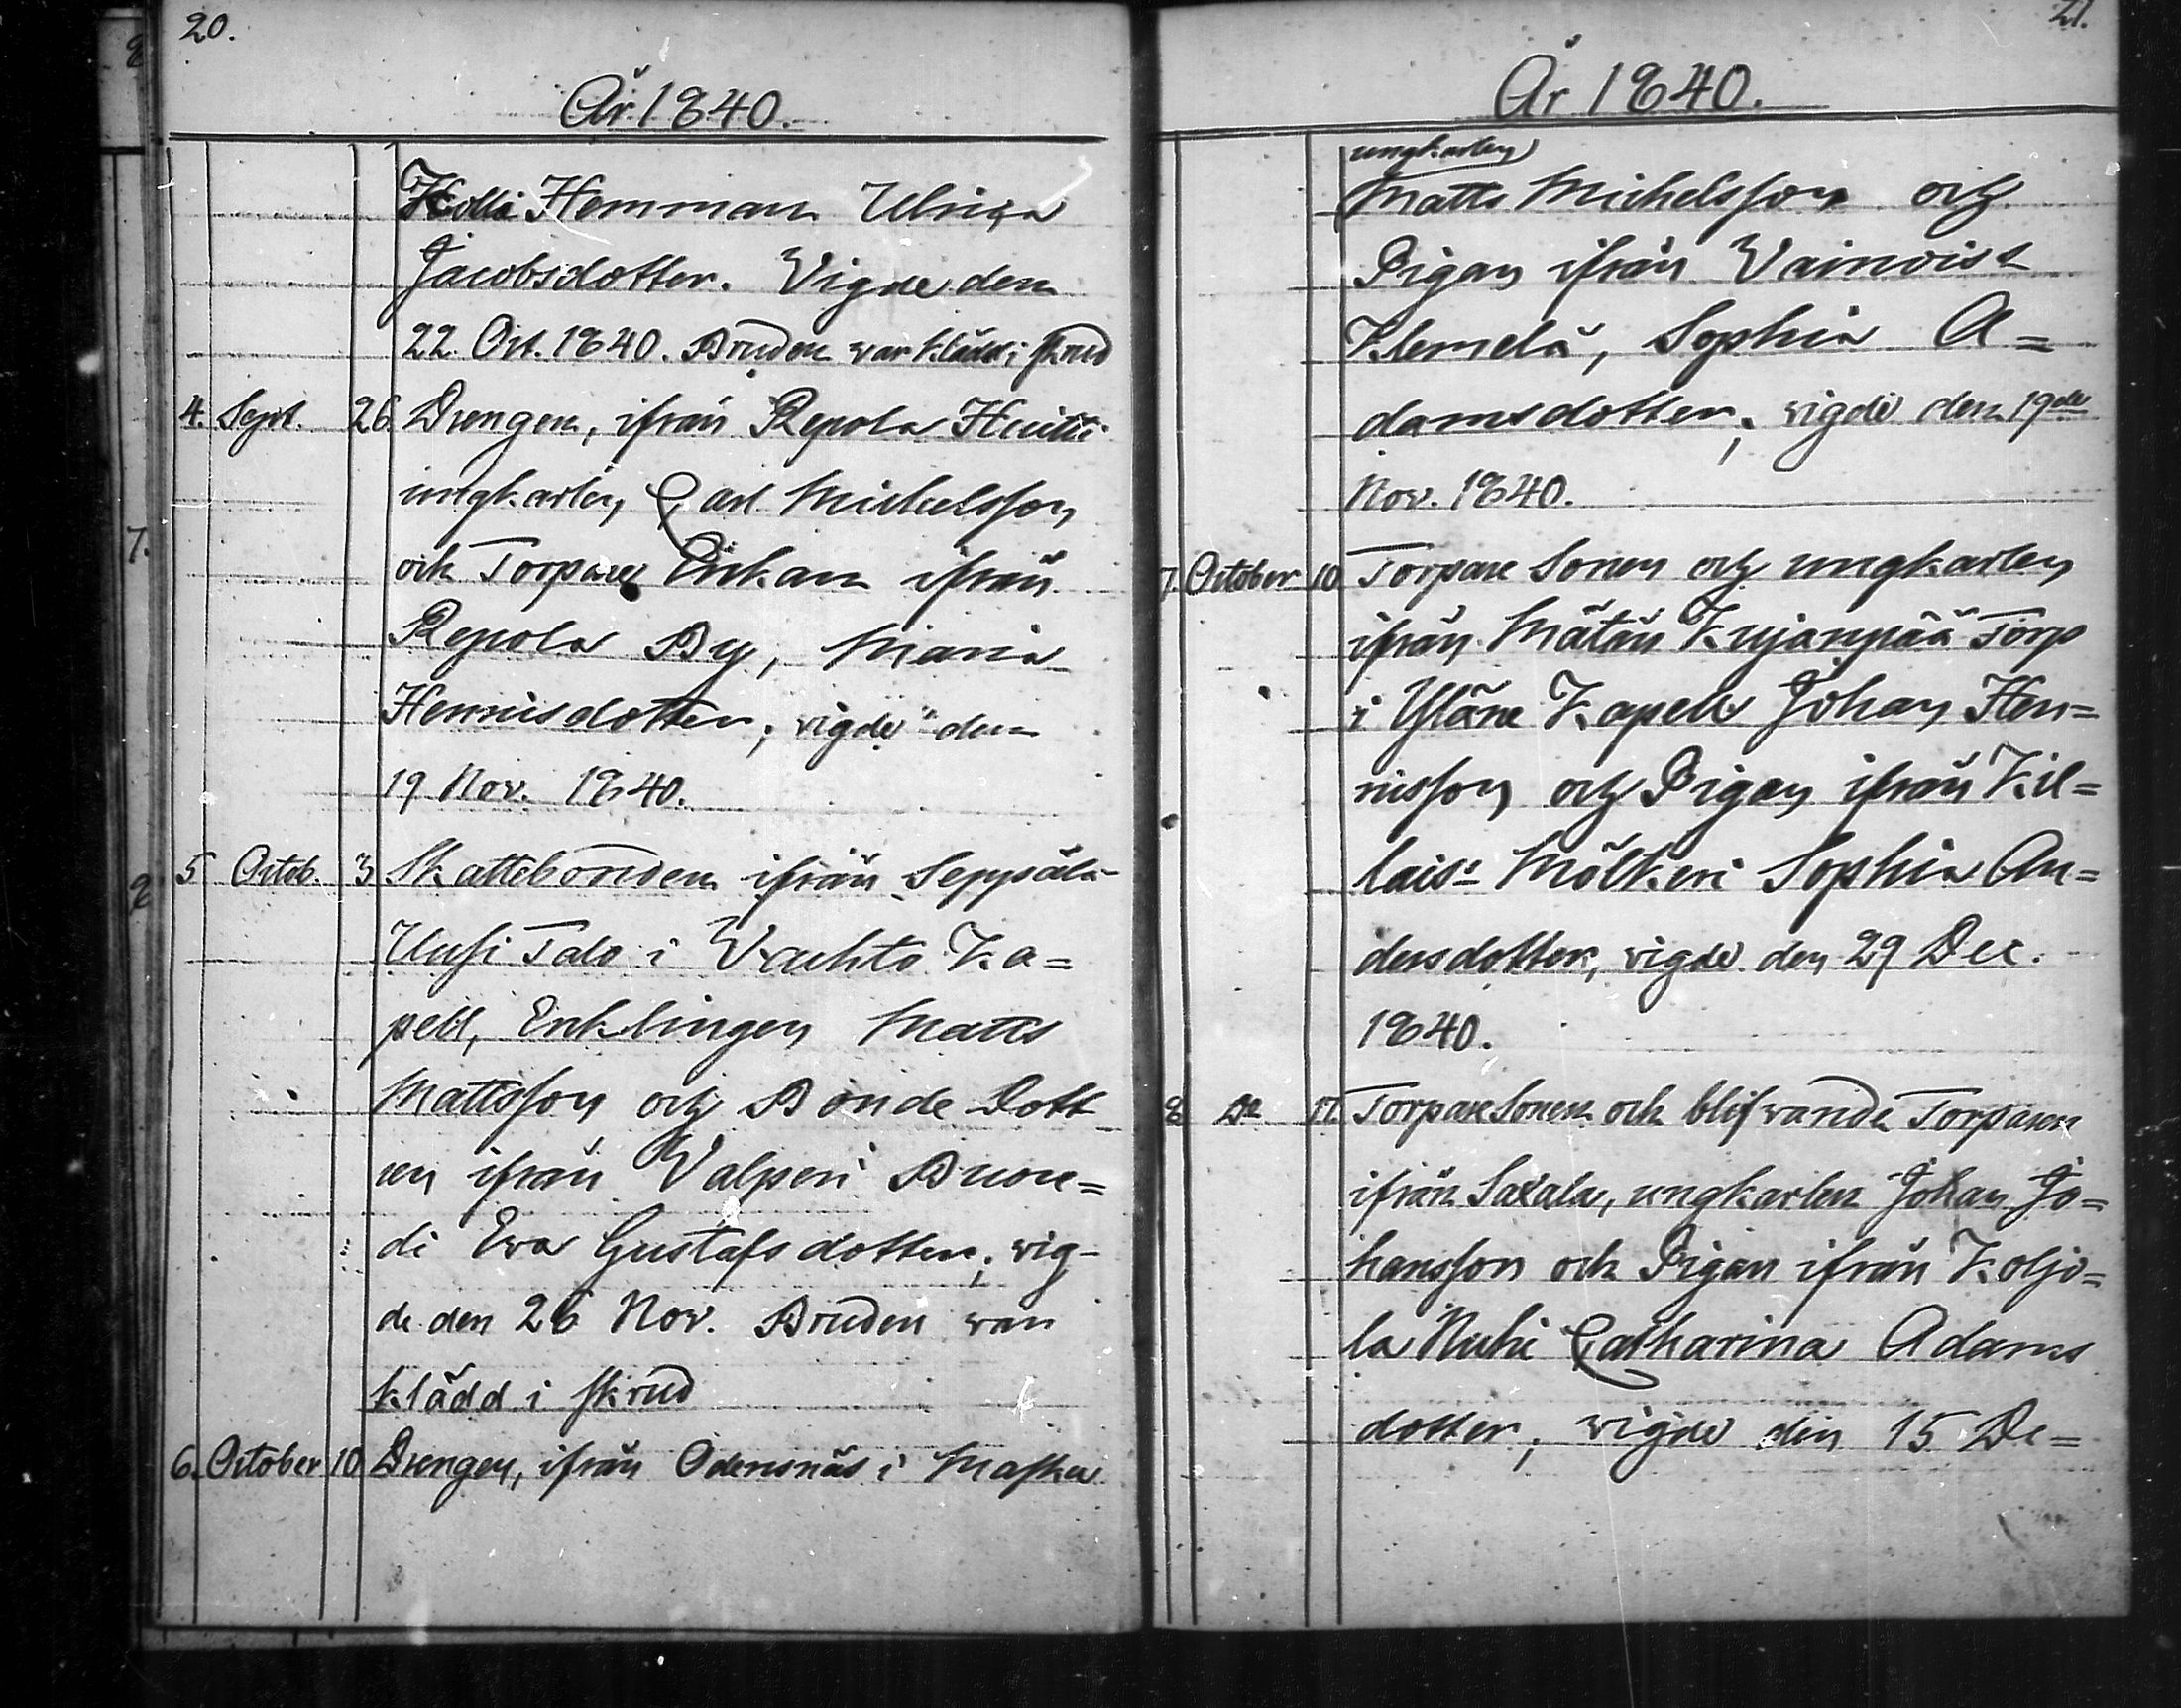 20.
År 1840.
Kolli Hemman Ulrica
Jacobsdotter. Vigde den
22 Oct. 1840. Bruden war klädd i skrud
4. Sept. 26. Drengen, ifrån Repola Huitti
ungkarlen Carl Michelsson
och Torpare Enkan ifrån
Repola By, Maria
Henricsdotter; vigde den
19 Nov. 1840.
5 Octob. 3 Skattebonden ifrån Seppälä
Uusi Talo i Vahto Ka=
pell, Enklingen Matts
Mattsson och Bonde Dott
ren ifrån Valperi Buore=
di Eva Gustafsdotter; vig-
de den 26 Nov. Bruden war
klädd i skrud
6. October 10 Drengen, ifrån Odensnäs i Masku
21.
År 1840.
ungkarlen
Matts Michelsson och
Pigan ifrån Vainoist
Klemelä, Sophia A=
damsdotter; vigde den 19de
Nov. 1840.
7. October 10 Torpare Sonen och ungkarlen
ifrån Mätän Kujanpää Torp
i Yläne Kapell Johan Hen=
ricsson och Pigan ifrån Kil=
lais Mölkeri Sophia An=
dersdotter, vigde den 29 Dec.
1840.
8 Do 17. Torpare Sonen och blifvande Torparen
ifrån Saxala, ungkarlen Johan Jo=
hansson och Pigan ifrån Koljo=
la Nuhi Catharina Adams
dotter; vigde den 15 De=
7.